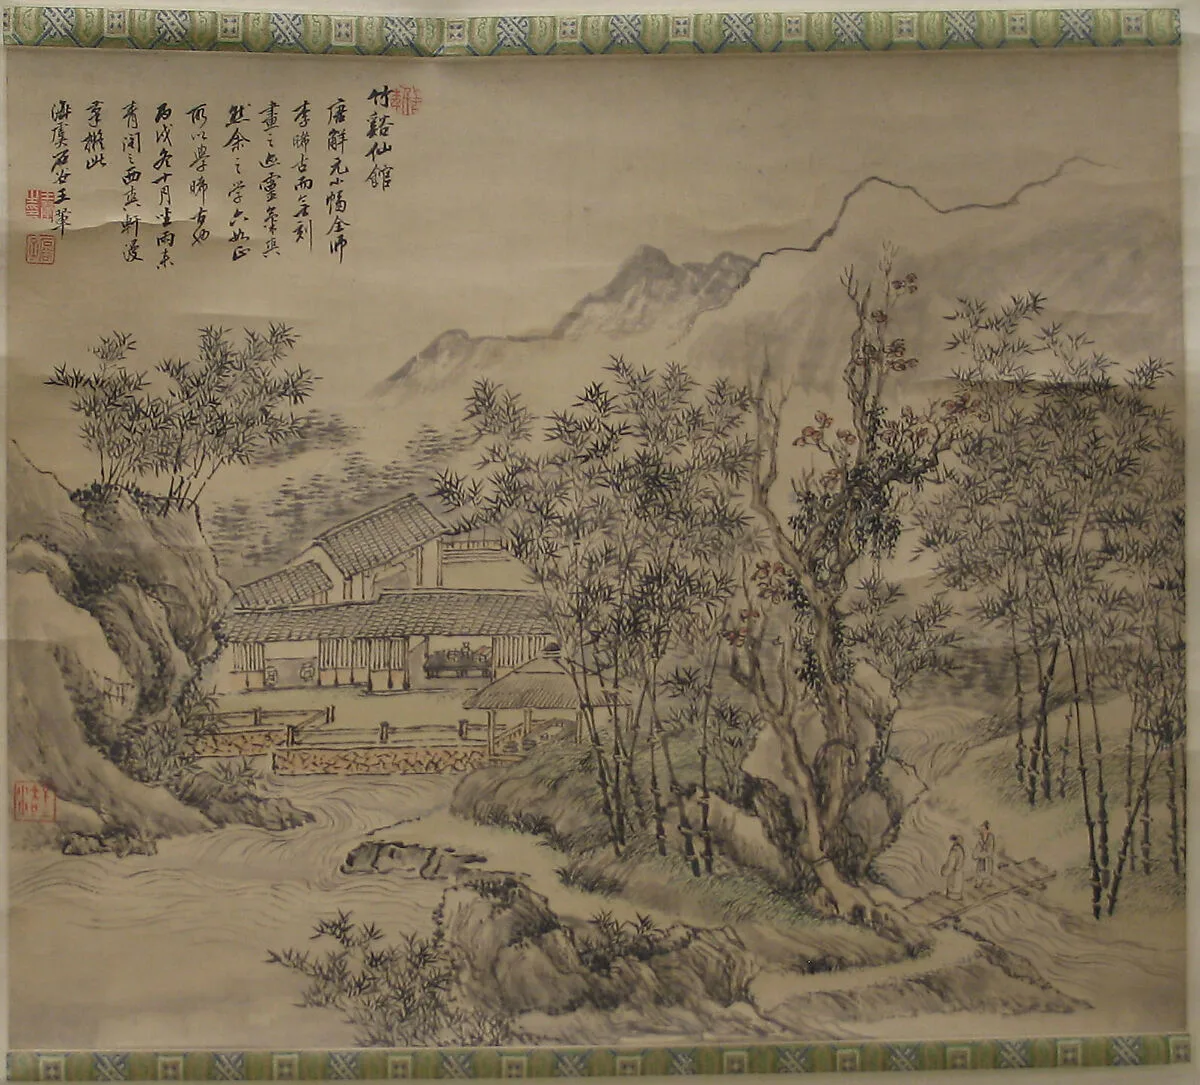 竹谿仙館
唐解元小幅全師
李晞古而無刻
畫之迹靈氣
然余之學六如正
所以學晞古也
丙戌冬十月坐雨來
青閣之西 軒漫
筆擬此
海虞石谷王翬